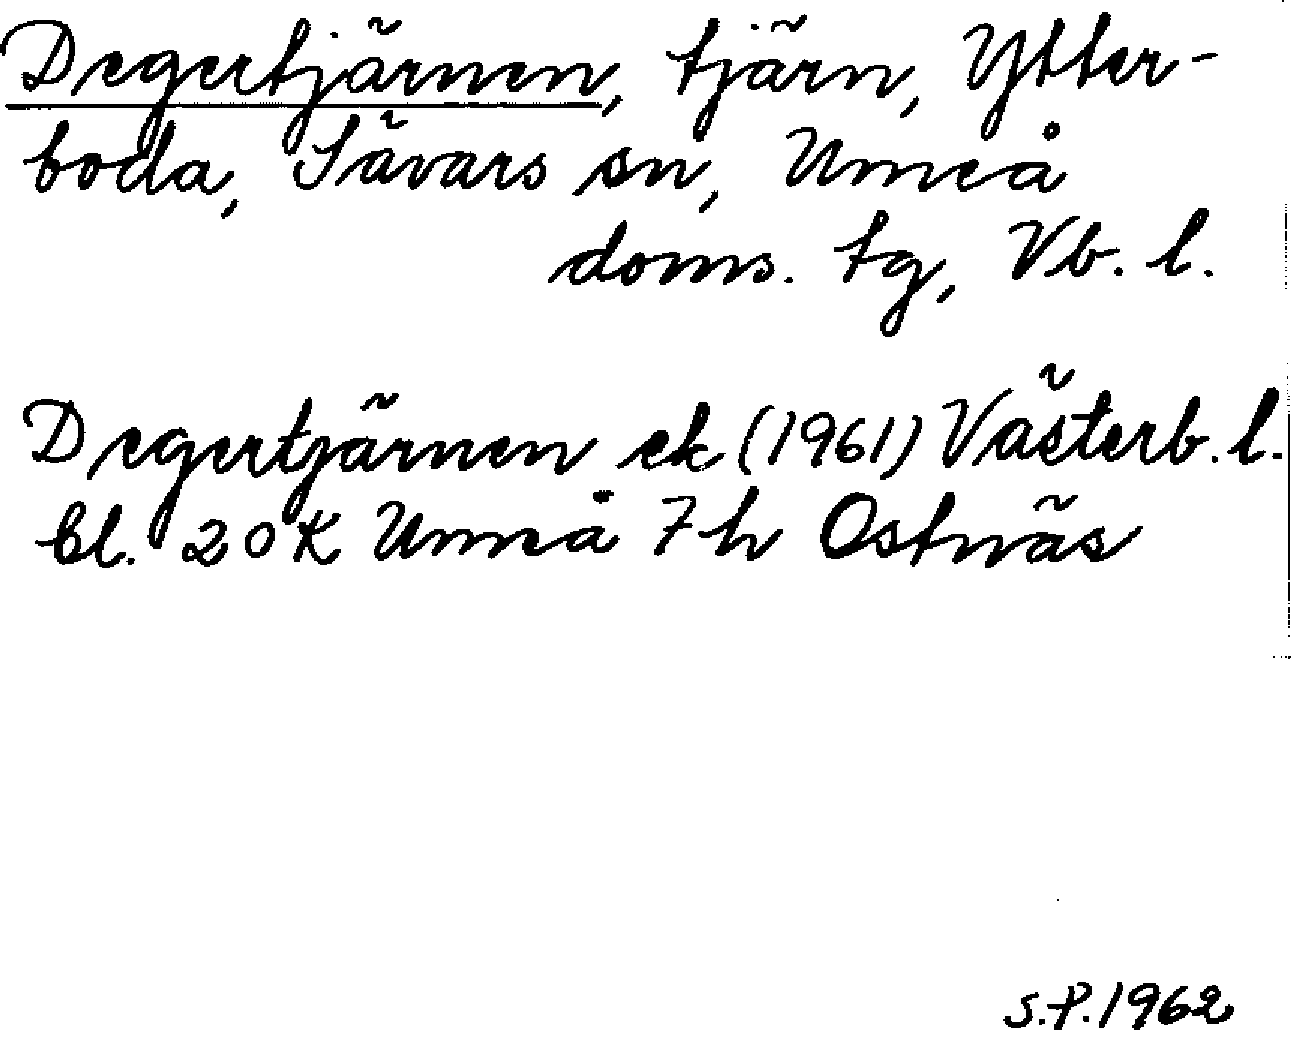 Degertjärnen, tjärn, Ytter-
boda, Sävars sn, Umeå
doms. tg, Vb. l.
Degertjärnen ek (1961) Västerb. l.
bl. 20K Umeå 7h Ostnäs
S.P. 1962